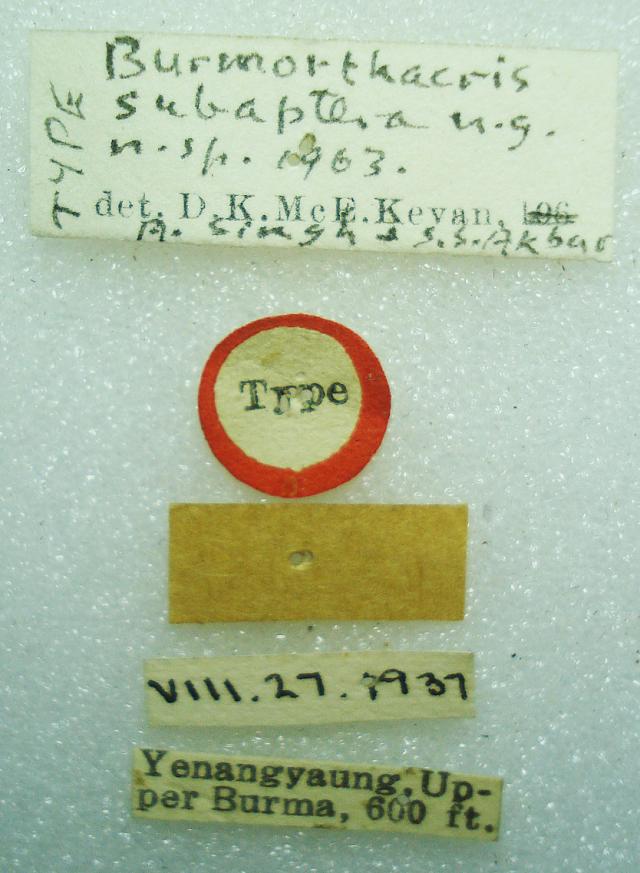 Burmorthacris
subaptera n.g.
n.sp. 1963.
TYPE
det. D.K.McE.Kevan, 196
A. Singh & S.S. Akbar
Type
VIII.27.1937
Yenangyaung, Up-
per Burma, 600 ft.